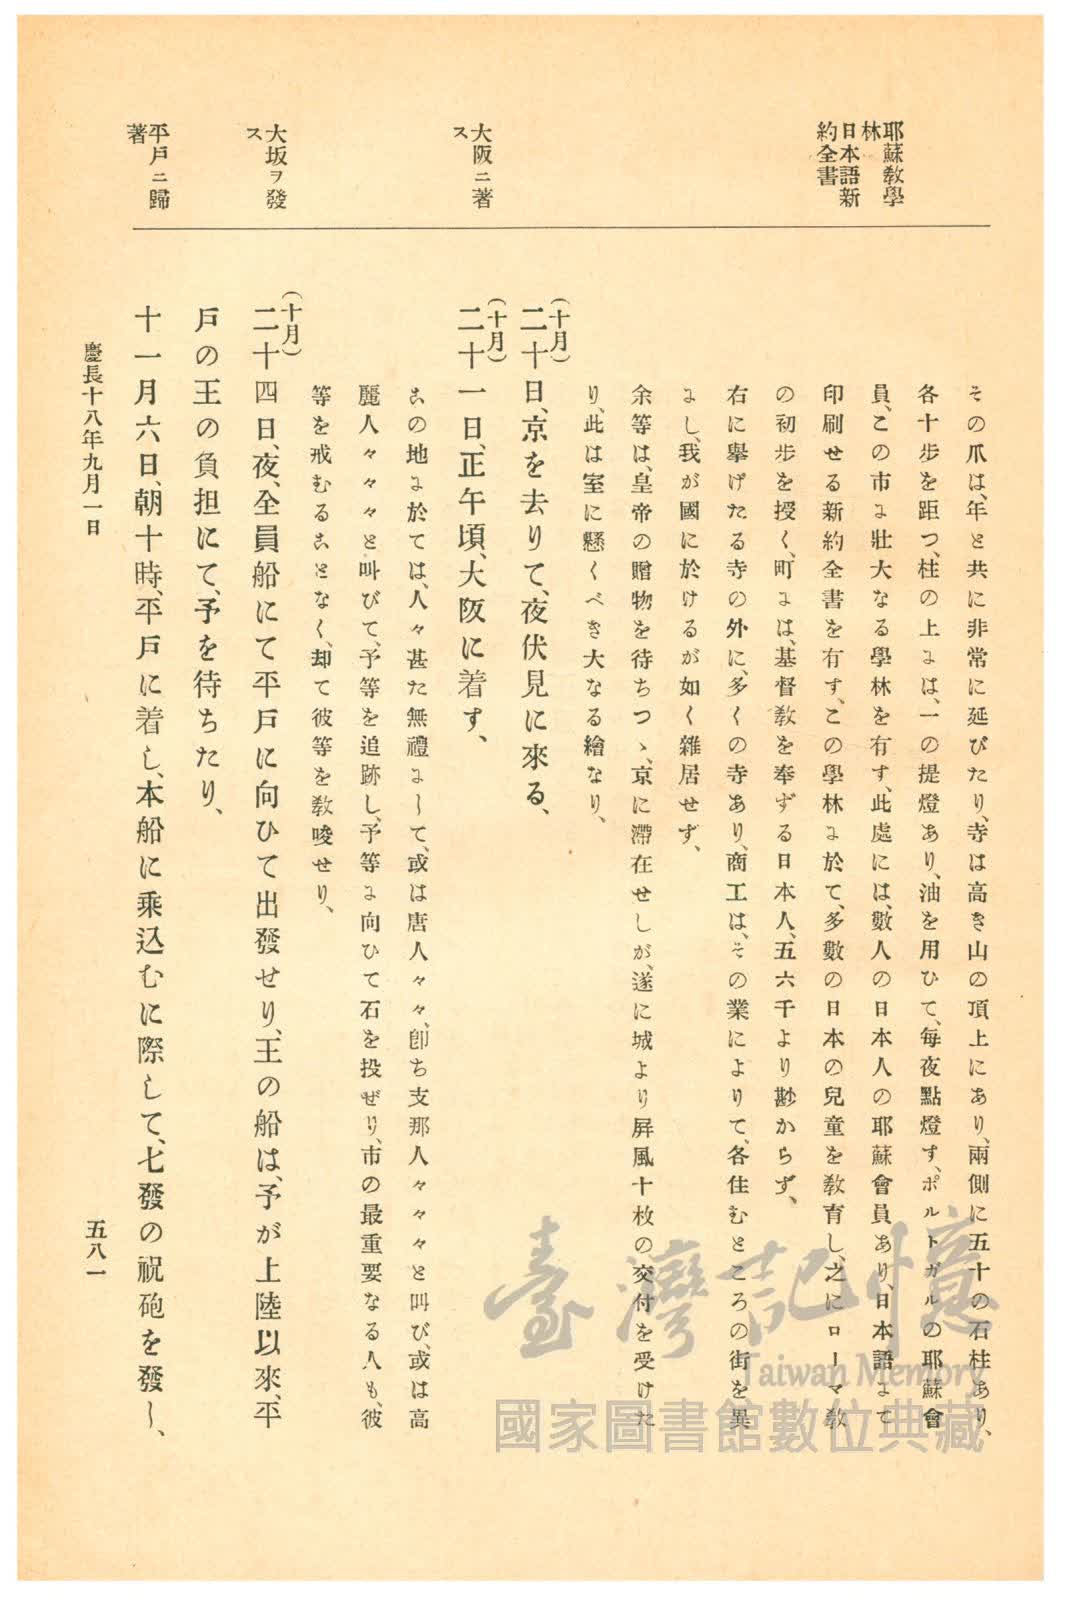 耶蘇教學
林
日本語新
約全書
大阪ニ著
ス
大坂ヲ發
ス
平戸ニ歸
著
その爪は、年と共に非常に延びたり、寺は高き山の頂上にあり、兩側に五十の石柱あり、
各十歩を距つ、柱の上には、一の提燈あり、油を用ひて、每夜點燈す、ポルトガルの耶蘇會
員、この市に壯大なる學林を有す、此處には、數人の日本人の耶蘇會員あり、日本語にて
印刷せる新約全書を有す、この學林に於て、多數の日本の兒童を敎育し、之にローマ敎
の初步を授く、町には、基督敎を奉ずる日本人、五六千より尠からず、
右に擧げたる寺の外に、多くの寺あり、商工は、その業によりて、各住むところの街を異
にし、我が國に於けるが如く雜居せず、
余等は、皇帝の贈物を待ちつゝ、京に滯在せしが、遂に城より屛風十枚の交付を受けた
り、此は室に懸くべき大なる繪なり、
(十月)
二十日、京を去りて、夜伏見に來る、
(十月)
二十一日、正午頃、大阪に着す、
この地に於ては、人々甚た無禮にして、或は唐人々々、卽ち支那人々々々と叫び、或は高
麗人々々々と叫びて、予等を追跡し、予等に向ひて石を投ぜり、市の最重要なる人も、彼
等を戒むることなく、却て彼等を敎唆せり、
(十月)
二十四日、夜、全員船にて平戸に向ひて出發せり、王の船は、予が上陸以來、平
戸の王の負担にて、予を待ちたり、
十一月六日、朝十時、平戸に着し、本船に乘込むに際して、七發の祝砲を發し、
慶長十八年九月一日
五八一
臺灣記憶
Taiwan Memory
國家圖書館數位典藏